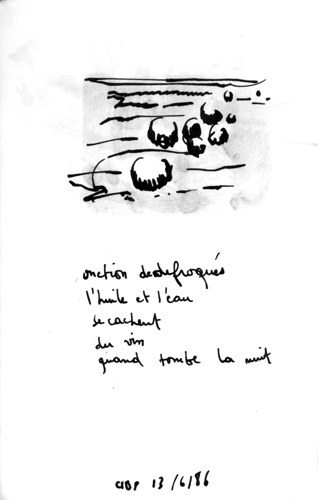 onction des defroqués
l'huile et l'eau
se cachent
du vin
quand tombe la nuit
13/6/86